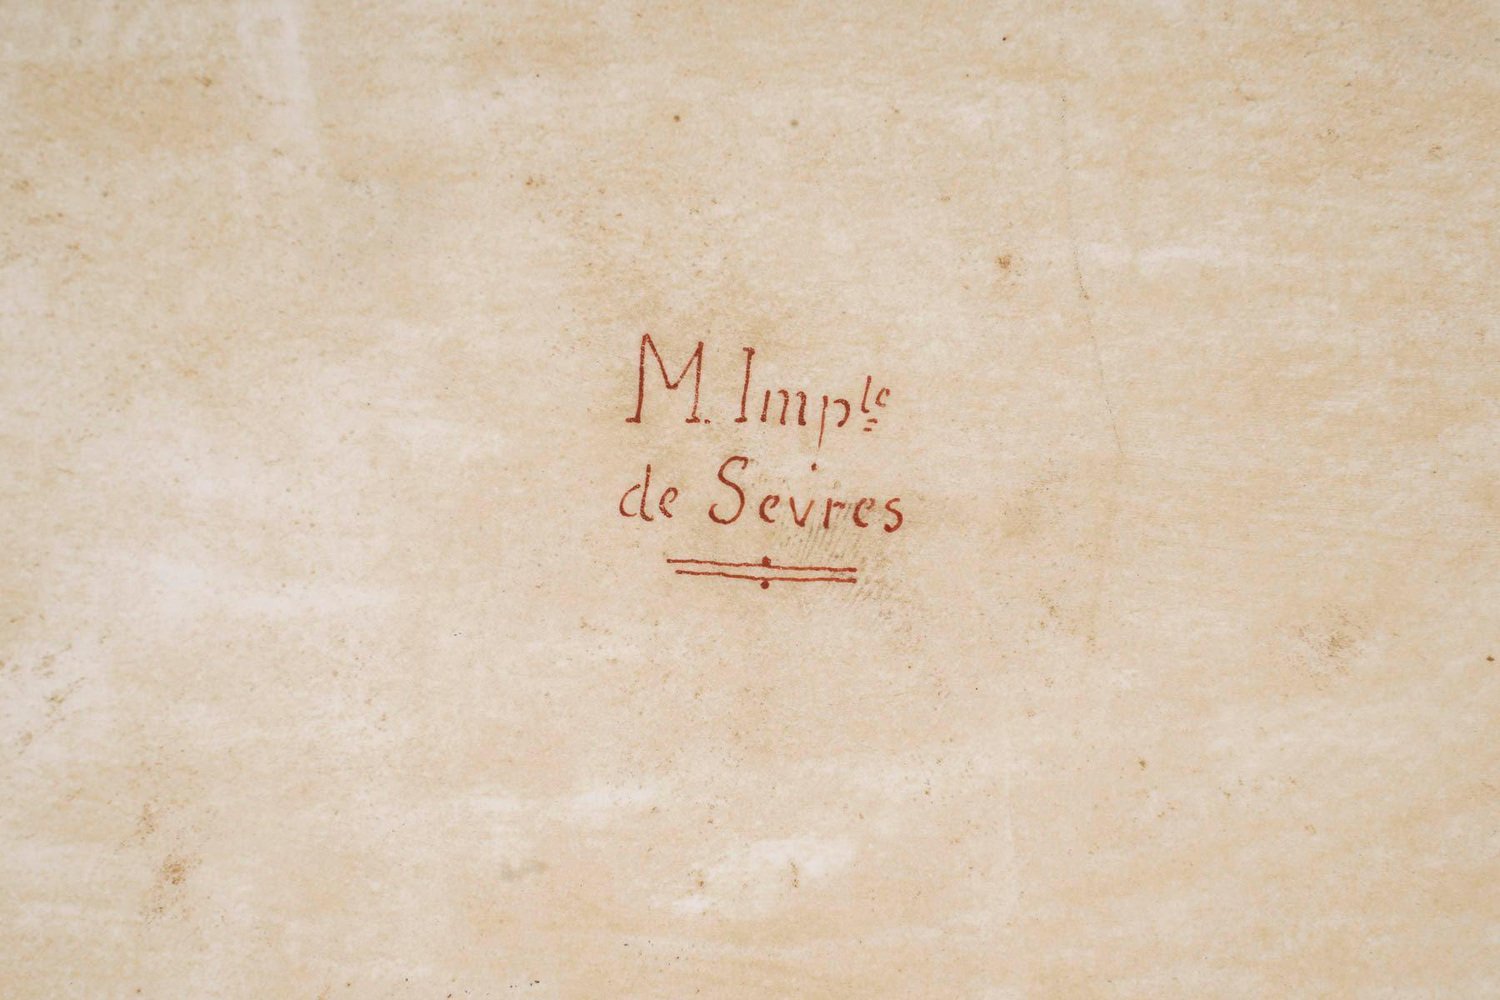 M. Imple
de Sevres